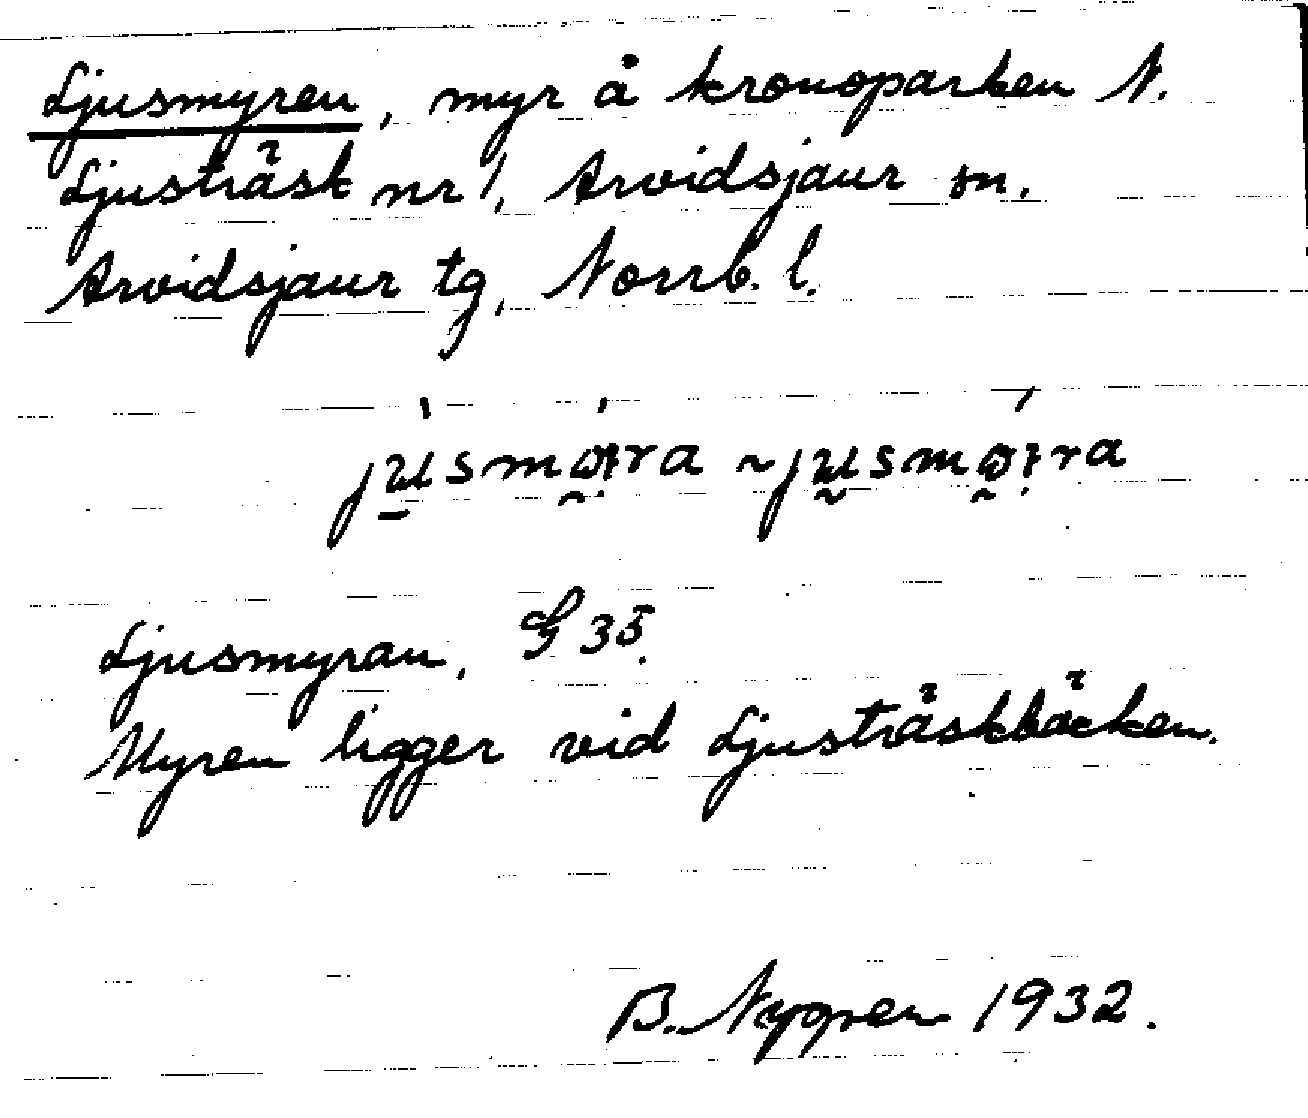 Ljusmyren, myr å kronoparken N.
Ljusträsk nr 1, Arvidsjaur sn.
Arvidsjaur tg, Norrb. l.
Ljusmyran, G 35.
Myren ligger vid Ljusträskbäcken.
B. Nygren 1932.